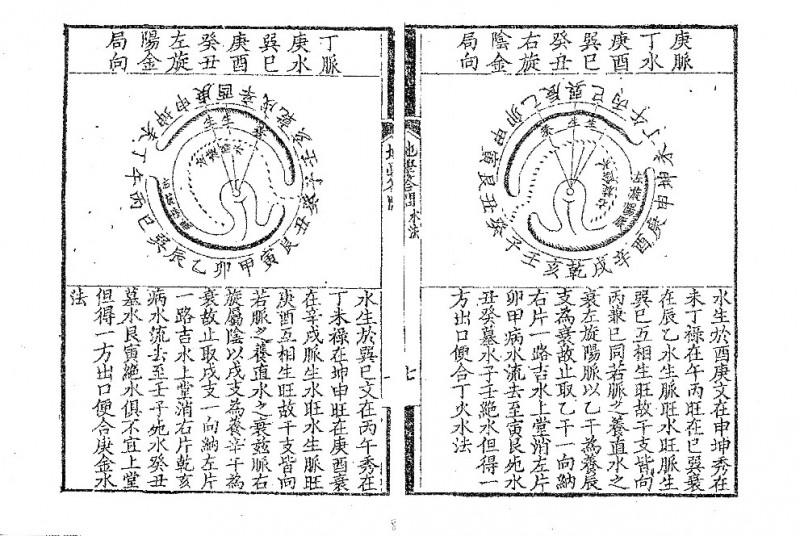 庚脈
丁水
庚酉
巽巳
癸丑
右旋
陰金
局向
子癸丑艮寅甲卯乙辰巽巳丙午丁未坤申庚酉辛戌乾亥壬
養生生
水生於酉庚文在申坤秀在
未丁祿在午丙旺在巳巽衰
在辰乙水生脈旺水旺脈生
巽巳互相生旺故干支皆向
丙兼巳同若脈之養直水之
衰左旋陽脈以乙干為養辰
支為衰故止取乙干一向納
右片一路吉水上堂消左片
卯甲病水流去至寅艮死水
丑癸墓水子壬絕水但得一
方出口便合丁火水法
地學答問
水法
七
丁脈
庚水
巽巳
庚酉
癸丑
左旋
陽金
局向
巽巳丙午丁未坤申庚酉辛戌乾亥壬子癸丑艮寅甲卯乙辰
生生養
水生於巽巳文在丙午秀在
丁未祿在坤申旺在庚酉衰
在辛戌脈生水旺水生脈旺
庚酉互相生旺故干支皆向
若脈之養直水之衰茲脈右
旋屬陰以戌支為養辛干為
衰故止取戌支一向納左片
一路吉水上堂消右片乾亥
病水流去至壬子死水癸丑
墓水艮寅絕水俱不宜上堂
但得一方出口便合庚金水
法
8